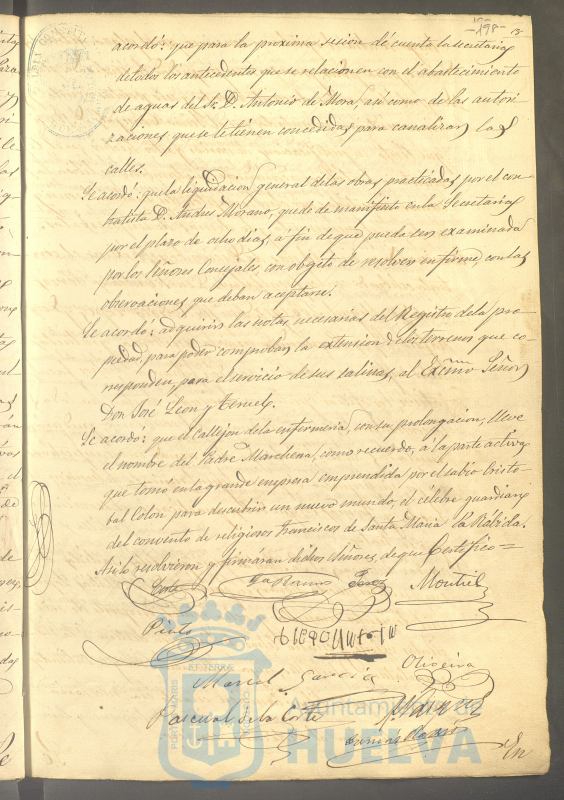 -198- 13
acordó: que para la proxima sesion dé cuenta la secretaria
de todos los antecedentes que se relacionen con el abastecimiento
de aguas del Sr. D. Antonio de Mora, asi como de las autori-
zaciones que se le tienen concedidas para canalizar las
calles.
Se acordó: que la liquidacion general de las obras practicadas por el con-
tratista D. Andres Morano, quede de manifiesto en la Secretaria
por el plazo de ocho dias, á fin de que pueda ser examinada
por los Señores Concejales, con objeto de resolver en firme, con las
observaciones que deban aceptarse.
Se acordó: adquirir las notas necesarias del Registro de la pro-
piedad, para poder comprobar la extension de los terrenos que co-
rresponden, para el servicio de sus salinas, al Excmo Señor
Don José Leon y Teruel.
Se acordó: que el callejon de la enfermeria, con su prolongacion, lleve
el nombre del Padre Marchena, como recuerdo, á la parte activa
que tomó en la grande empresa emprendida por el sabio Cristo-
bal Colon para descubrir un nuevo mundo, el célebre guardian
del convento de religiosos franciscos de Santa Maria la Rábida.
Asi lo resolvieron y firmáran dichos Señores, de que Certifico=
Montiel
Pinto
Oliveira
Garcia
Pascual de la Corte
PORTUS MARIS ET TERRÆ CUSTODIA
Ayuntamiento de
HUELVA